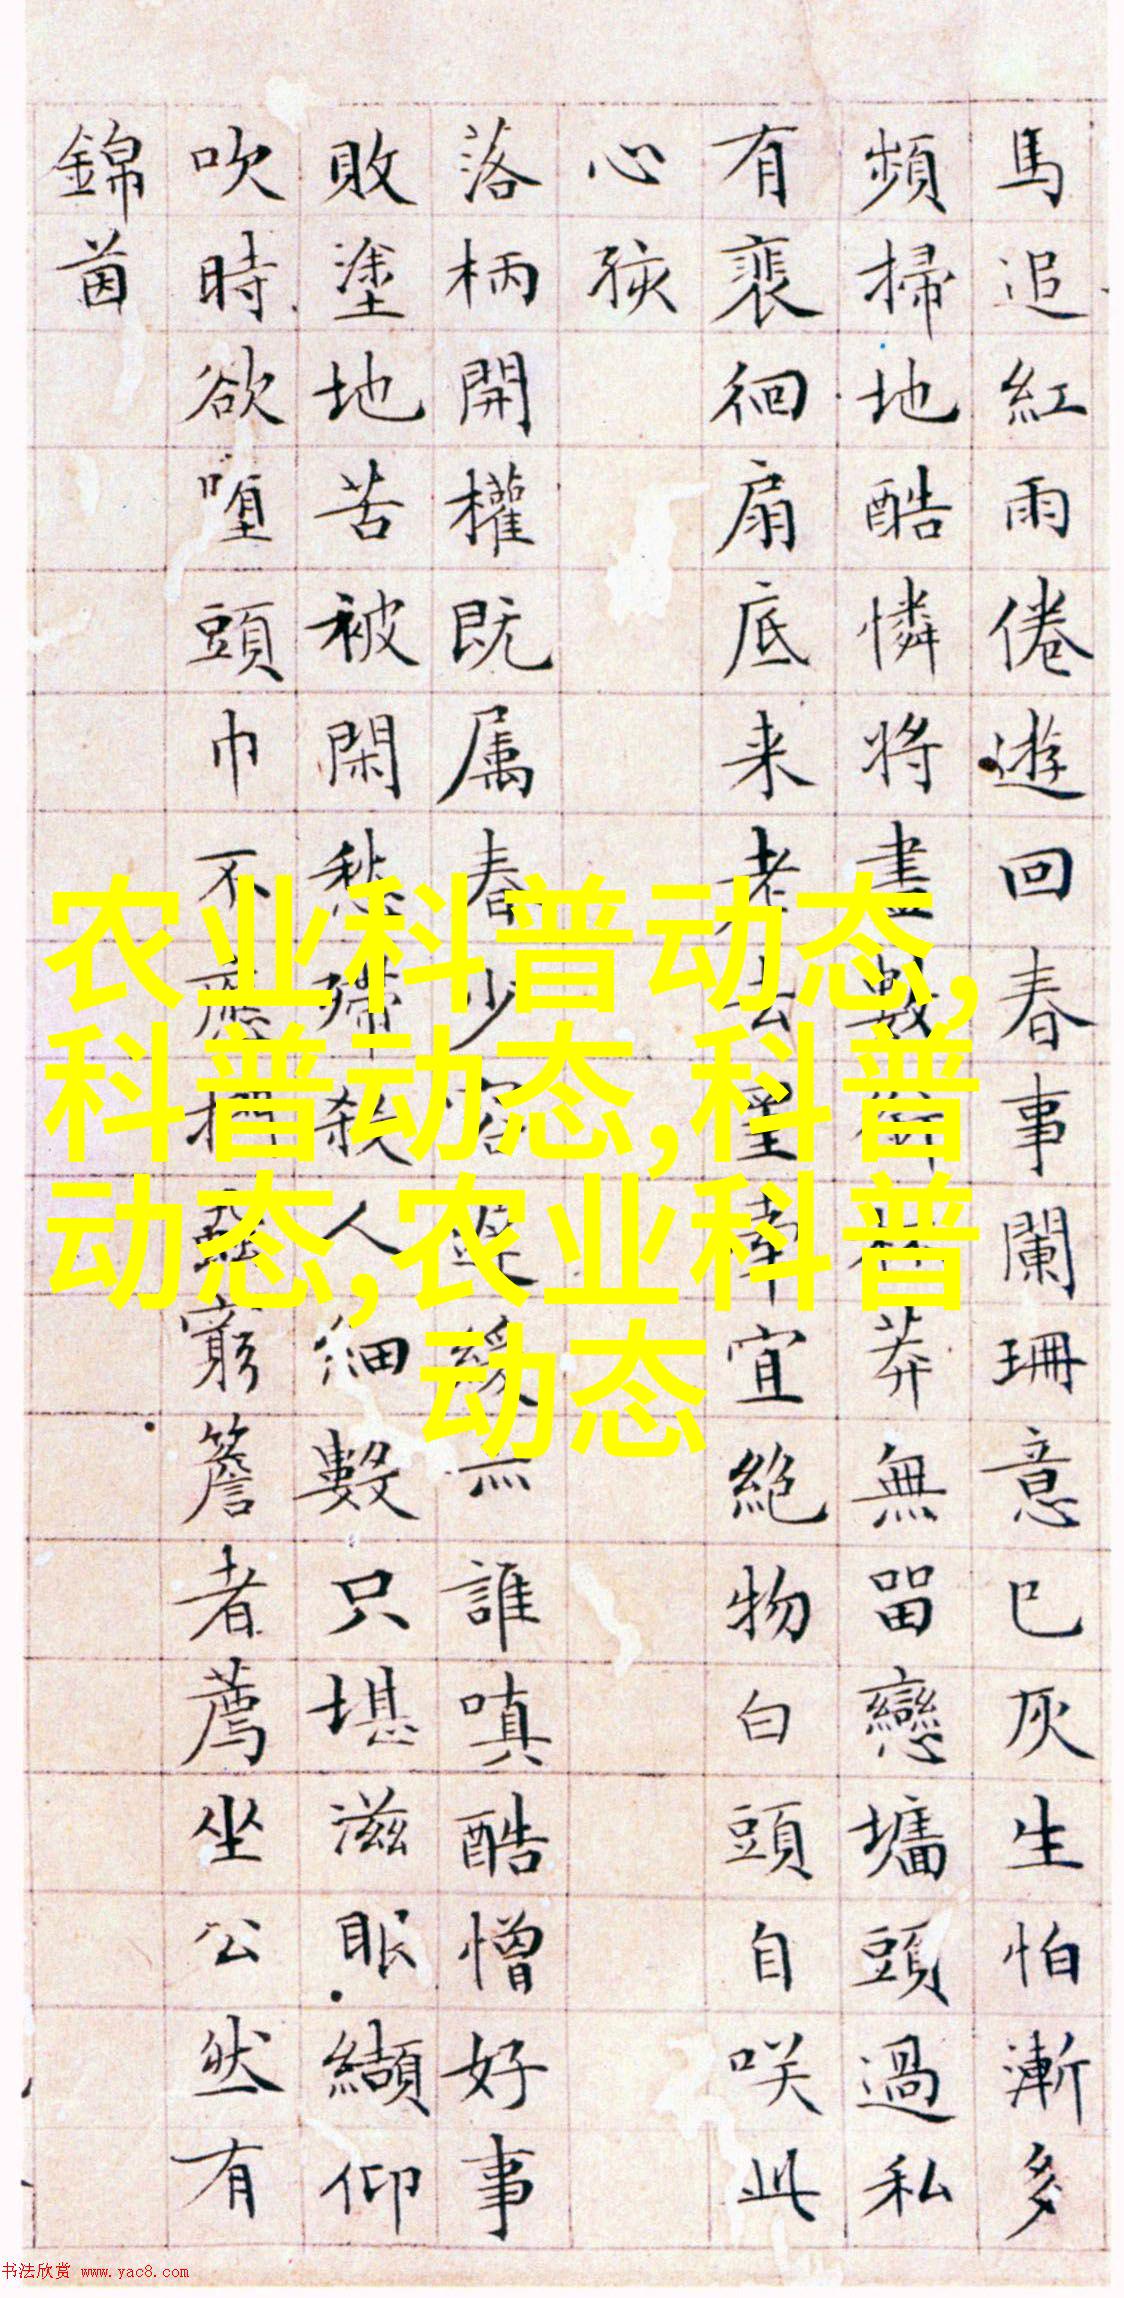 馬追紅雨倦遊回春事闌珊意已灰生怕漸多
頻掃地酷憐將盡數莽無留戀墻頭過私
有裴徊扇底来老去望幸宜絶物白頭自咲此
心孩
落柄開權既属春少容誰嗔酷憎好事
敗塗地苦被閑愁殢殺人細數只堪滋眼纈仰
吹時欲墮頭巾不應窮簷者薦坐公然有
錦茵
农业科普动态,
科普动态,科普
动态,农业科普
动态
书法欣赏 www.yac8.com